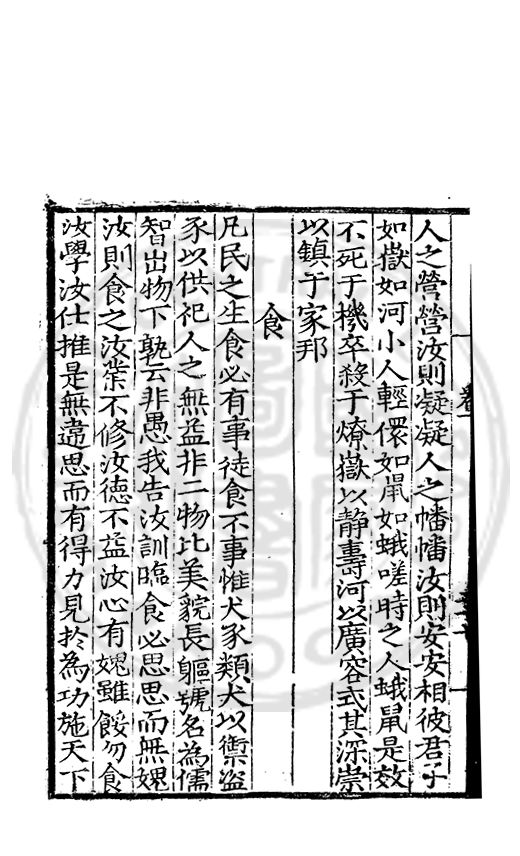 人之營營汝則凝凝人之幡幡汝則安安相彼君子
如嶽如河小人輕儇如鼠如蛾嗟時之人蛾鼠是效
不死于機卒殺于燎嶽以静壽河以廣容式其深崇
以鎮于家邦
食
凡民之生食必有事徒食不事惟犬豕類犬以禦盗
豕以供祀人之無益非二物比美貌長軀號名為儒
智出物下孰云非愚我告汝訓臨食必思思而無媿
汝則食之汝業不修汝德不益汝心有媿雖餒勿食
汝學汝仕推是無違思而有得力見扵為功施天下